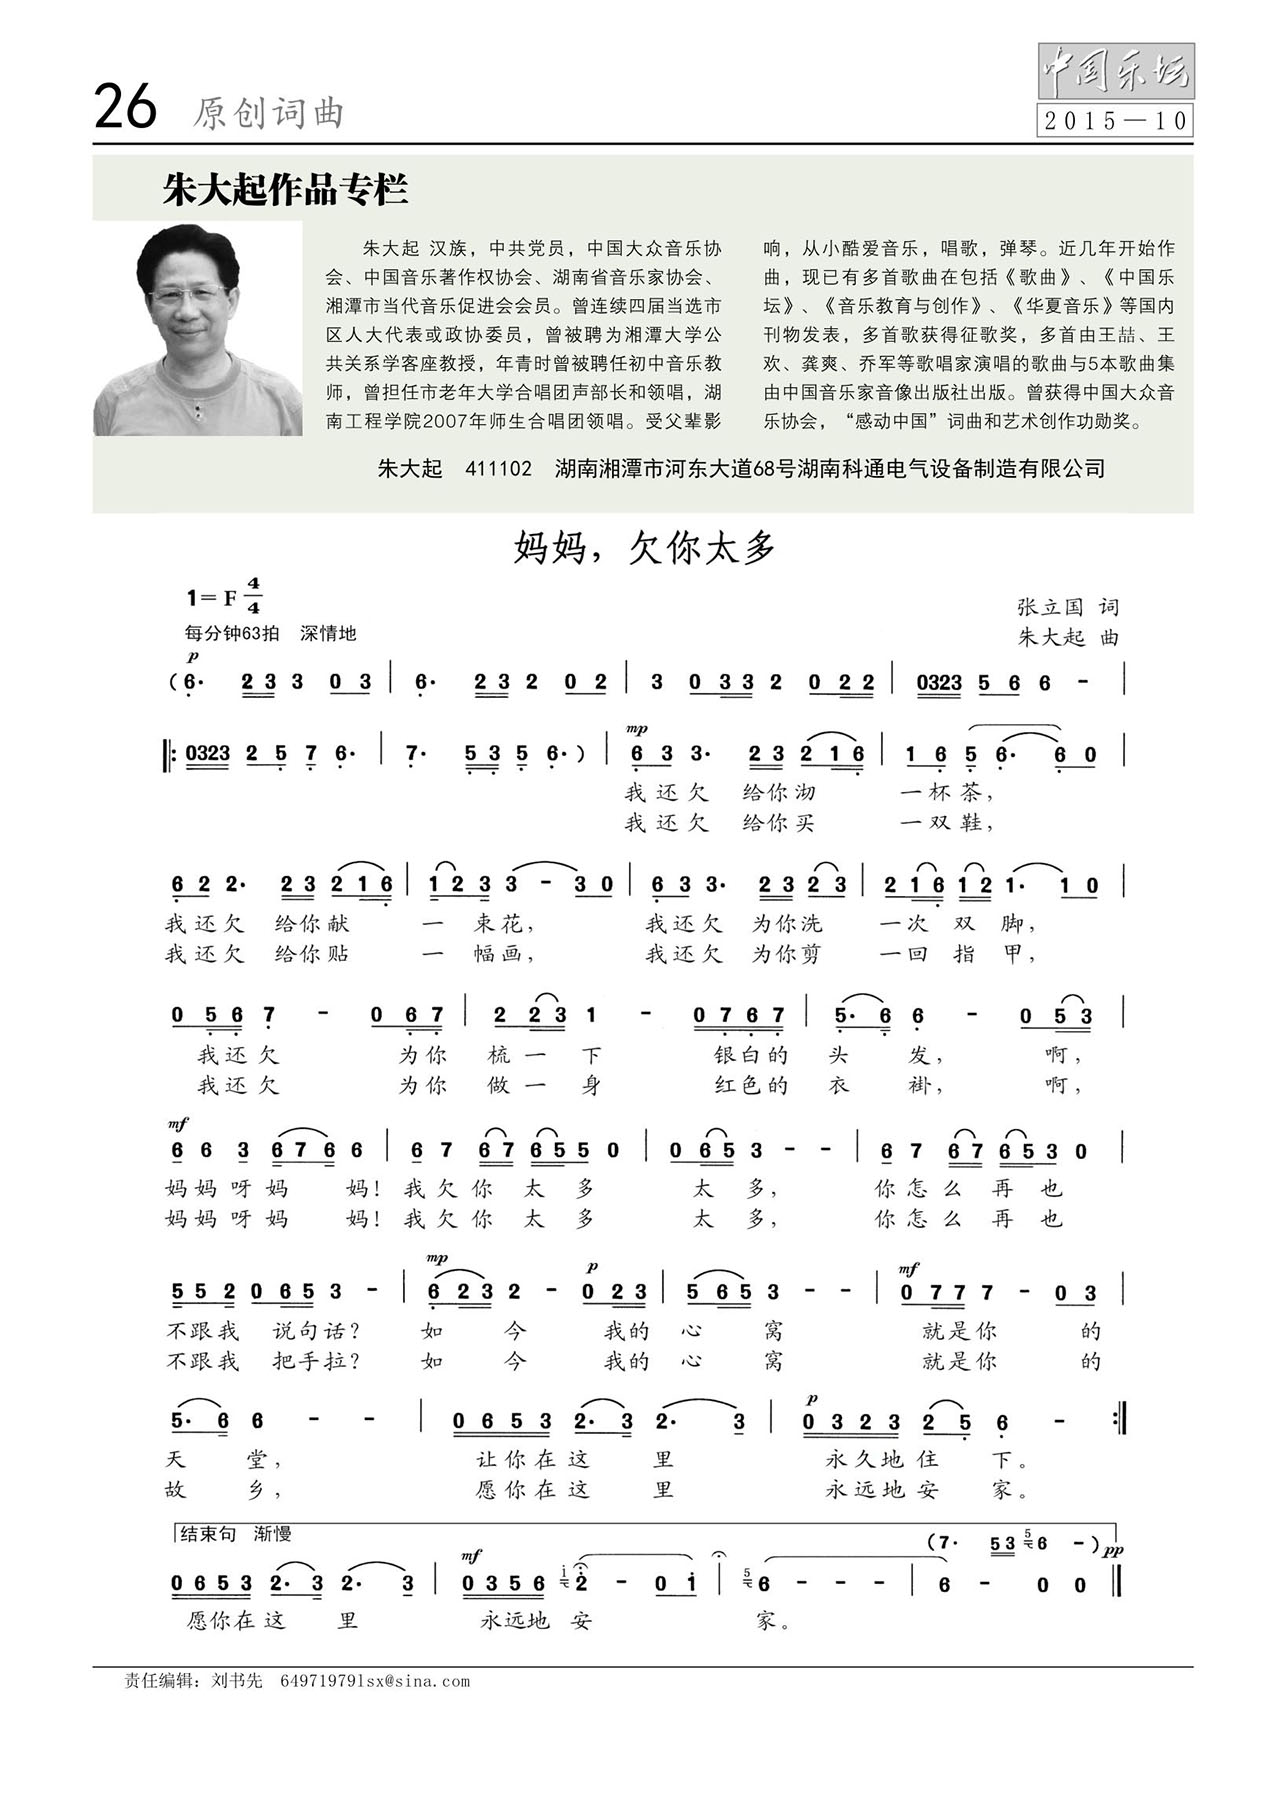 26 原创词曲
中国乐坛
2015—10
朱大起作品专栏
朱大起 汉族，中共党员，中国大众音乐协
会、中国音乐著作权协会、湖南省音乐家协会、
湘潭市当代音乐促进会会员。曾连续四届当选市
区人大代表或政协委员，曾被聘为湘潭大学公
共关系学客座教授，年青时曾被聘任初中音乐教
师，曾担任市老年大学合唱团声部长和领唱，湖
南工程学院2007年师生合唱团领唱。受父辈影
响，从小酷爱音乐，唱歌，弹琴。近几年开始作
曲，现已有多首歌曲在包括《歌曲》、《中国乐
坛》、《音乐教育与创作》、《华夏音乐》等国内
刊物发表，多首歌获得征歌奖，多首由王喆、王
欢、龚爽、乔军等歌唱家演唱的歌曲与5本歌曲集
由中国音乐家音像出版社出版。曾获得中国大众音
乐协会，“感动中国”词曲和艺术创作功勋奖。
朱大起 411102 湖南湘潭市河东大道68号湖南科通电气设备制造有限公司
妈妈，欠你太多
1=F 4/4
张立国 词
每分钟63拍 深情地
朱大起 曲
p
(6· 2 3 3 0 3 | 6· 2 3 2 0 2 | 3 0 3 3 2 0 2 2 | 0323 5 6 6 - |
mp
|: 0323 2 5 7 6· | 7· 5 3 5 6·) | 6 3 3· 2 3 2 1 6 | 1 6 5 6· 6 0 |
我还欠 给你沏 一杯茶，
我还欠 给你买 一双鞋，
6 2 2· 2 3 2 1 6 | 1 2 3 3 - 3 0 | 6 3 3· 2 3 2 3 | 2 1 6 1 2 1· 1 0 |
我还欠 给你献 一 束花， 我还欠 为你洗 一次 双 脚，
我还欠 给你贴 一 幅画， 我还欠 为你剪 一回 指 甲，
0 5 6 7 - 0 6 7 | 2 2 3 1 - 0 7 6 7 | 5· 6 6 - 0 5 3 |
我还欠 为你 梳一 下 银白的 头 发， 啊，
我还欠 为你 做一 身 红色的 衣 褂， 啊，
mf
6 6 3 6 7 6 6 | 6 7 6 7 6 5 5 0 | 0 6 5 3 - - | 6 7 6 7 6 5 3 0 |
妈妈呀妈 妈！我欠你 太 多 太 多， 你怎么 再 也
妈妈呀妈 妈！我欠你 太 多 太 多， 你怎么 再 也
mp p mf
5 5 2 0 6 5 3 - | 6 2 3 2 - 0 2 3 | 5 6 5 3 - - | 0 7 7 7 - 0 3 |
不跟我 说句话？ 如 今 我的 心 窝 就是你 的
不跟我 把手拉？ 如 今 我的 心 窝 就是你 的
p
5· 6 6 - - | 0 6 5 3 2· 3 2· 3 | 0 3 2 3 2 5 6 - :|
天 堂， 让你在这 里 永久地 住 下。
故 乡， 愿你在这 里 永远地 安 家。
结束句 渐慢
(7· 5 3 5 6 -) pp
mf
0 6 5 3 2· 3 2· 3 | 0 3 5 6 i 2 - 0 i | 5 6 - - - | 6 - 0 0 ||
愿你在这 里 永远地 安 家。
责任编辑：刘书先 64971979lsx@sina.com